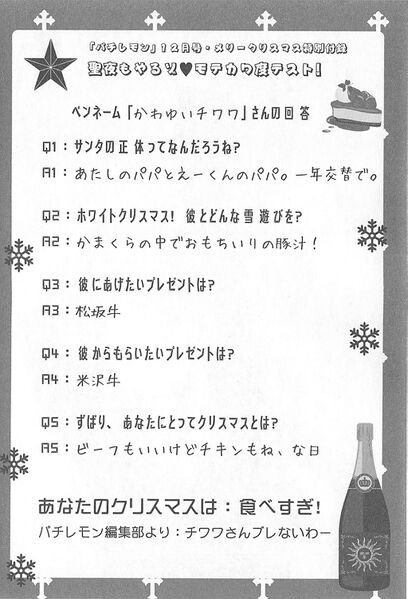 「パチレモン」12月号・メリークリスマス特別付録
聖夜もやるゾ♥モテカワ度テスト!
ペンネーム「かわゆいチワワ」さんの回答
Q1:サンタの正体ってなんだろうね?
A1:あたしのパパとえーくんのパパ。一年交替で。
Q2:ホワイトクリスマス! 彼とどんな雪遊びを?
A2:かまくらの中でおもちいりの豚汁!
Q3:彼にあげたいプレゼントは?
A3:松坂牛
Q4:彼からもらいたいプレゼントは?
A4:米沢牛
Q5:ずばり、あなたにとってクリスマスとは?
A5:ビーフもいいけどチキンもね、な日
あなたのクリスマスは:食べすぎ!
パチレモン編集部より:チワワさんブレないわー